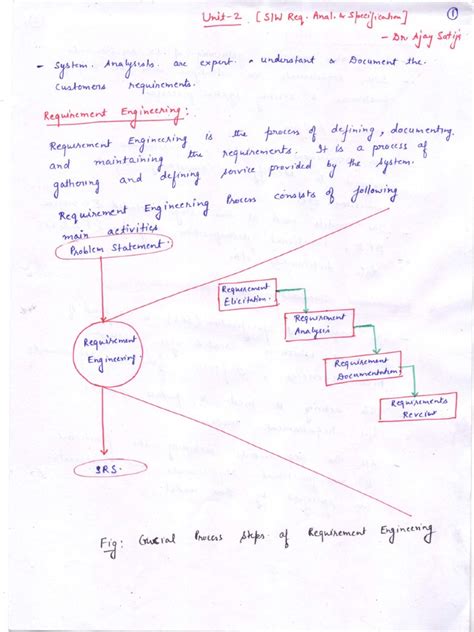 Unit-2 [S/W Req. Anal. & Specification]
①
- Dr. Ajay Satija
- System Analysists are expert. understant & Document the
Customers requirements.
Requirement Engineering:
Requirement Engineering is the process of defining, documenting
and maintaining the requirements. It is a process of
gathering and defining service provided by the system.
Requirement Engineering Process consists of following
main activities
Problem Statement.
Requirement
Elicitation.
Requirement
Analysis
Requirement
Engineering.
Requirement
Documentation.
Requirements
SRS.
Fig: Crucial Process Steps of Requirement Engineering